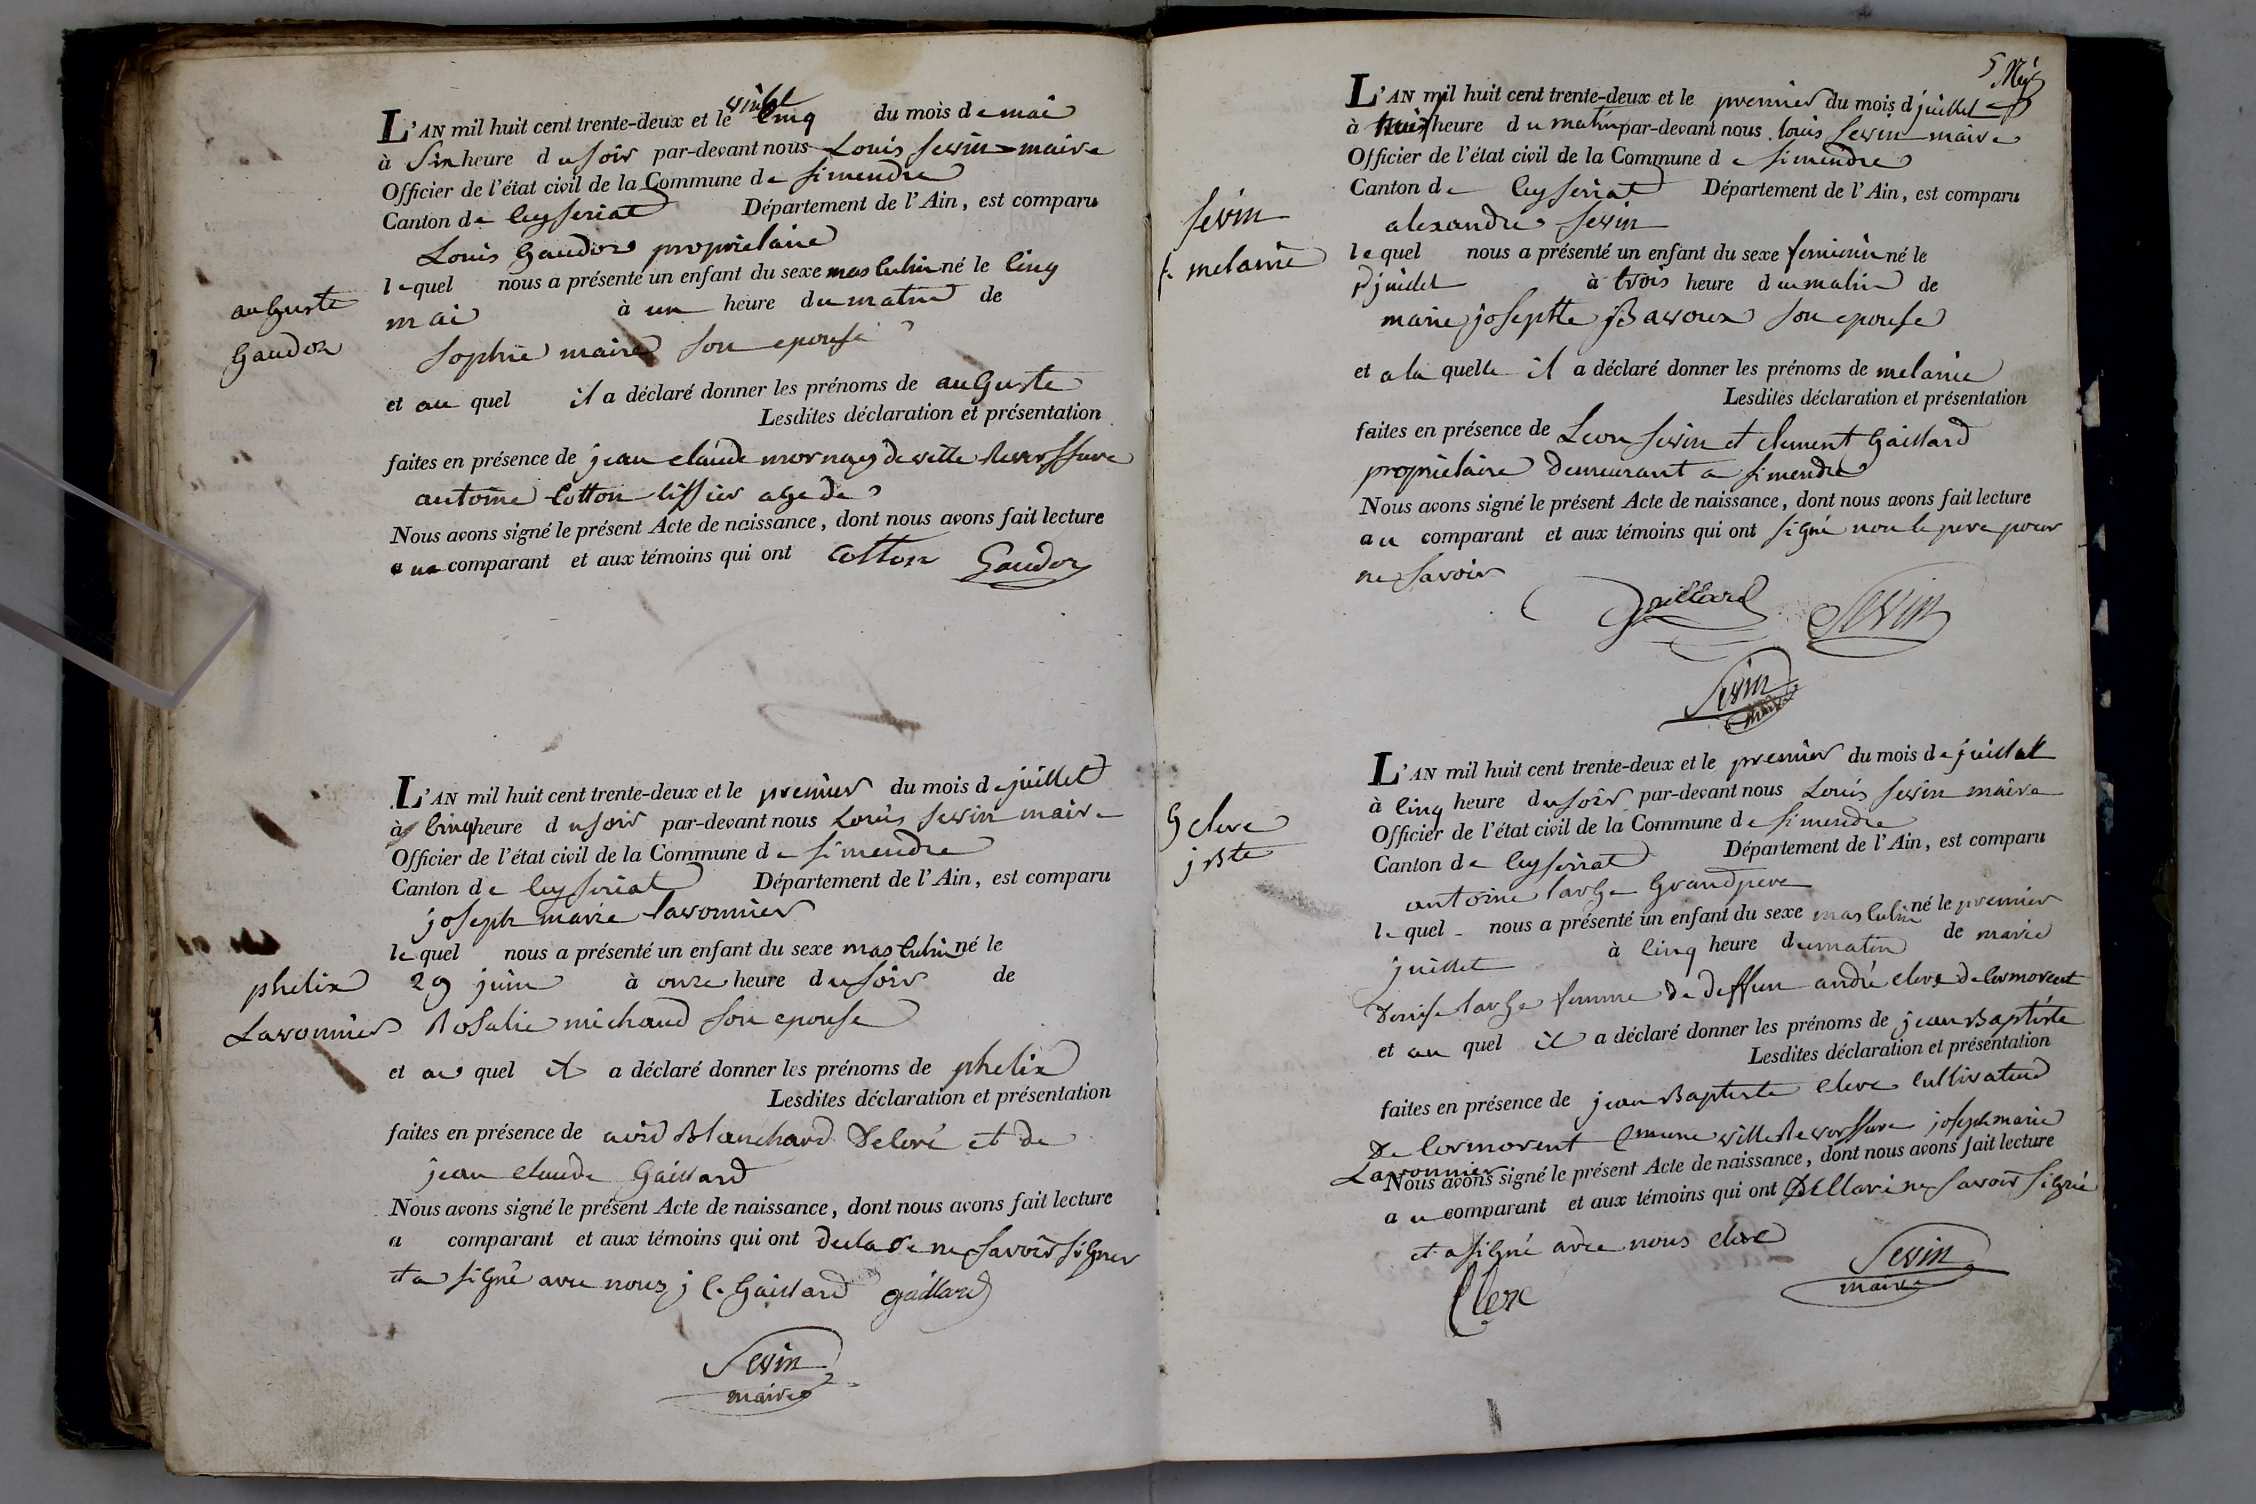 auguste
Gaudoz
L'AN mil huit cent trente-deux et le vinbt cinq du mois de mai
à Six heure du soir par-devant nous Louis Sevin maire
Officier de l'état civil de la Commune de simendre
Canton de Ceyseriat Département de l'Ain, est comparu
Louis Gaudoz propriétaire
lequel nous a présenté un enfant du sexe masculin né le cinq
mai à un heure du matin de
Sophie maire son epouse
et au quel il a déclaré donner les prénoms de auguste
Lesdites déclaration et présentation
faites en présence de jean claude mornay de ville Reverssure
antoine Cotton tissier age de
Nous avons signé le présent Acte de naissance, dont nous avons fait lecture
au comparant et aux témoins qui ont Cotton Gaudoz
phelix
Lavonnier
L'AN mil huit cent trente-deux et le premier du mois de juillet
à cinq heure du soir par-devant nous Louis Sevin maire
Officier de l'état civil de la Commune de simendre
Canton de Ceyseriat Département de l'Ain, est comparu
joseph marie lavonnier
lequel nous a présenté un enfant du sexe masculin né le
29 juin à onze heure du soir de
Rosalie michaud son epouse
et au quel il a déclaré donner les prénoms de phelix
Lesdites déclaration et présentation
faites en présence de Blanchard et de
jean claude Gaillard
Nous avons signé le présent Acte de naissance, dont nous avons fait lecture
a comparant et aux témoins qui ont ne savoir signer
et a signé avec nous j C. Gaillard gaillard
Sevin
maire
sevin
f. melanie
L'AN mil huit cent trente-deux et le premier du mois d juillet
à huit heure du matin par-devant nous louis Sevin maire
Officier de l'état civil de la Commune de simendre
Canton de Ceyseriat Département de l'Ain, est comparu
alexandre Sevin
lequel nous a présenté un enfant du sexe feminin né le
juillet à trois heure du matin de
marie josephte Bavoux son epouse
et a la quelle il a déclaré donner les prénoms de melanie
Lesdites déclaration et présentation
faites en présence de Leon sevin et clement Gaillard
propriétaire demeurant a simendre
Nous avons signé le présent Acte de naissance, dont nous avons fait lecture
au comparant et aux témoins qui ont signé non le pere pour
ne savoir
Gaillard Sevin
Sevin
maire
G clerc
j Bte
L'AN mil huit cent trente-deux et le premier du mois de juillet
à cinq heure du soir par-devant nous Louis Sevin maire
Officier de l'état civil de la Commune de simendre
Canton de Ceyseriat Département de l'Ain, est comparu
antoine large Grandpere
lequel nous a présenté un enfant du sexe masculin né le premier
juillet à cinq heure du matin de marie
Denise large femme de deffun andré clerc de Cormorent
et au quel il a déclaré donner les prénoms de jean Baptiste
Lesdites déclaration et présentation
faites en présence de jean Baptiste clerc Cultivateur
De Cormorent Cmune ville Reverssure joseph marie
Lavonnier
Nous avons signé le présent Acte de naissance, dont nous avons fait lecture
au comparant et aux témoins qui ont ne savoir signé
et a signé avec nous clerc
Clerc
Sevin
maire